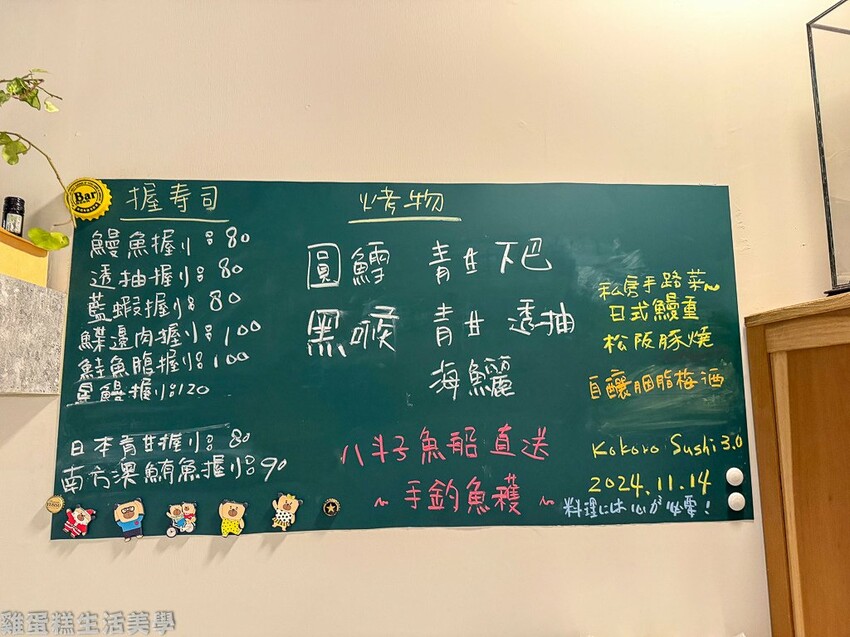 Bar
握寿司
鰻魚握り: 80
透抽握り: 80
藍蝦握り: 80
鰈邊肉握り: 100
鮭魚腹握り: 100
星鰻握り: 120
日本青甘握り: 80
南方澳鮪魚握り: 90
烤物
圓鱈 青甘 下巴
黑喉 青甘 透抽
海鱺
八斗子魚船直送
~手釣魚穫~
私房手路菜~
日式鰻重
松阪豚燒
自釀胭脂梅酒
Kokoro Sushi 3.0
2024.11.14
料理には心が必要!
雞蛋糕生活美學